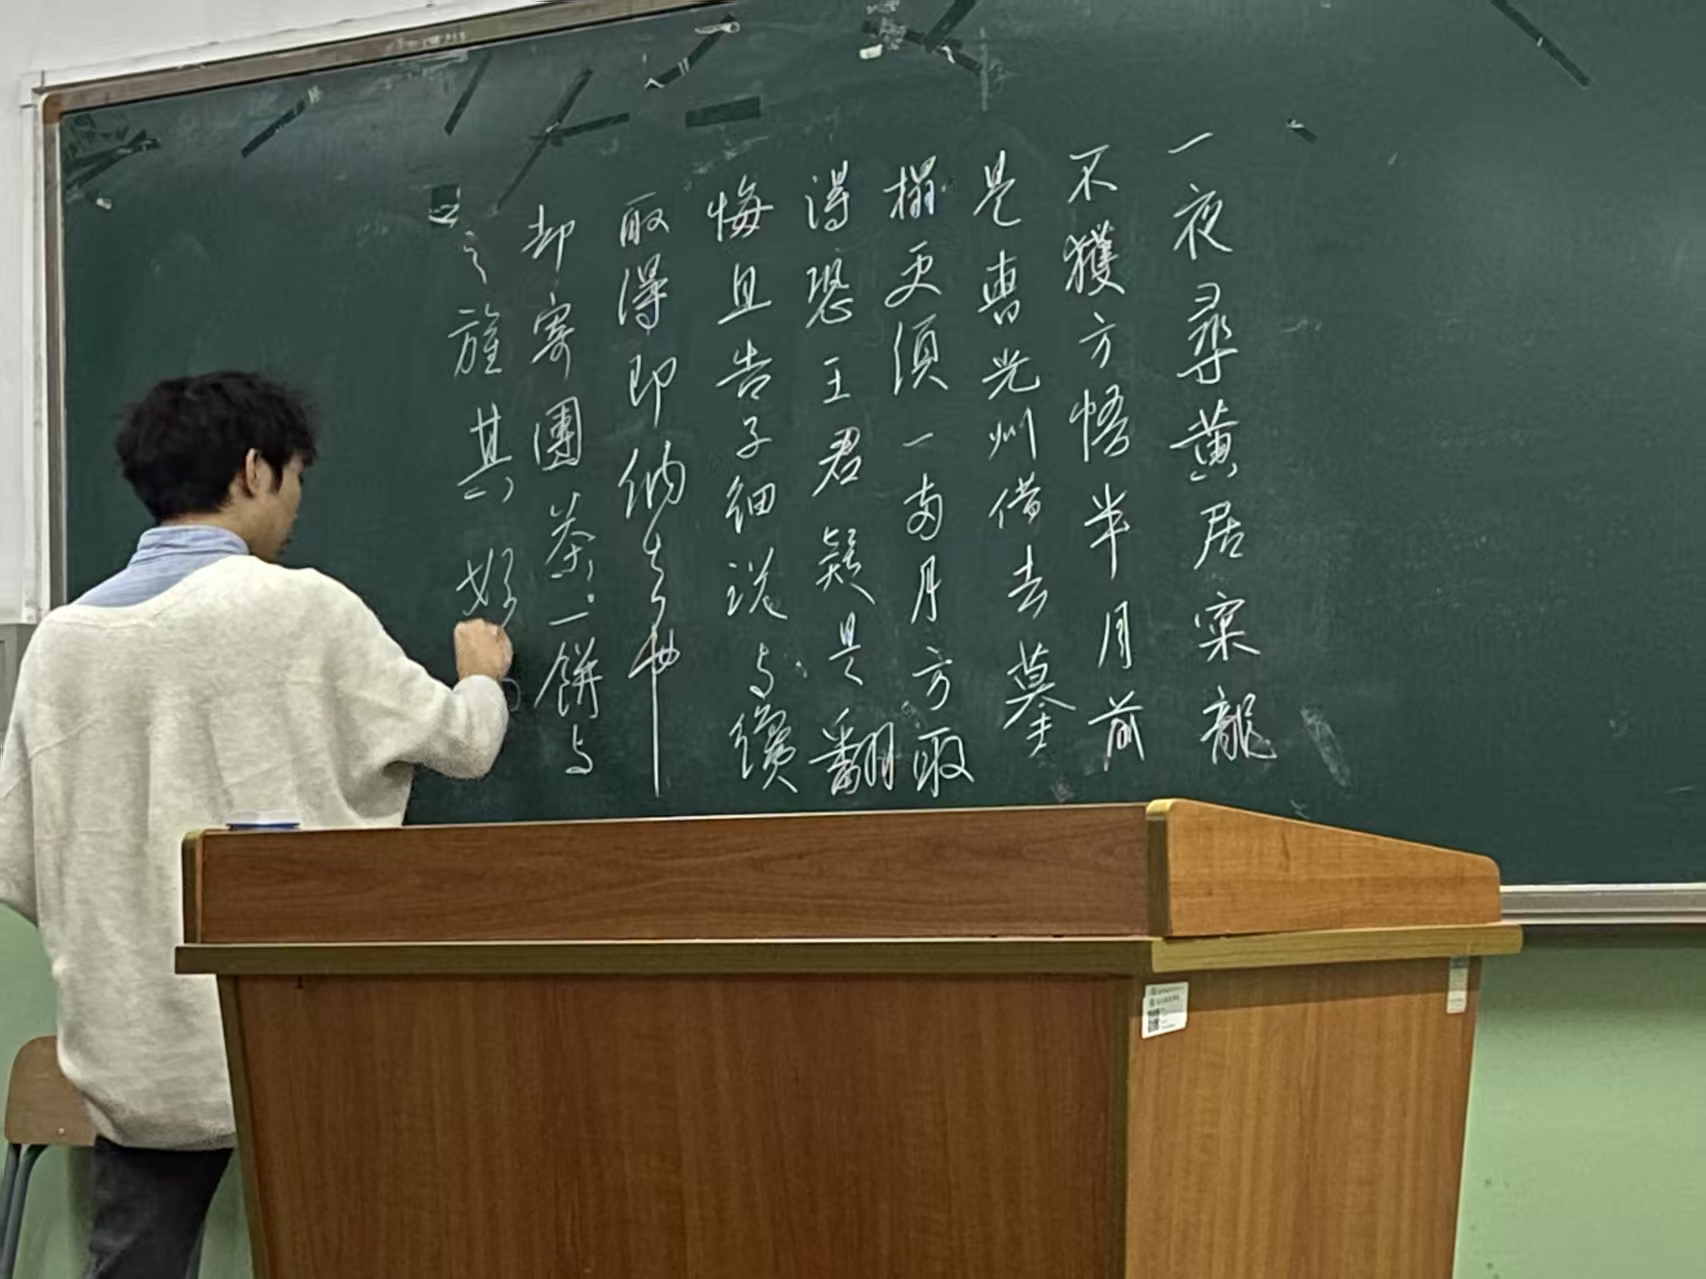 一夜尋黃居寀龍
不獲方悟半月前
是曹光州借去摹
搨更須一兩月方取
得恐王君疑是翻
悔且告子細説与纔
取得即納去也
却寄團茶一餅与
之旌其好